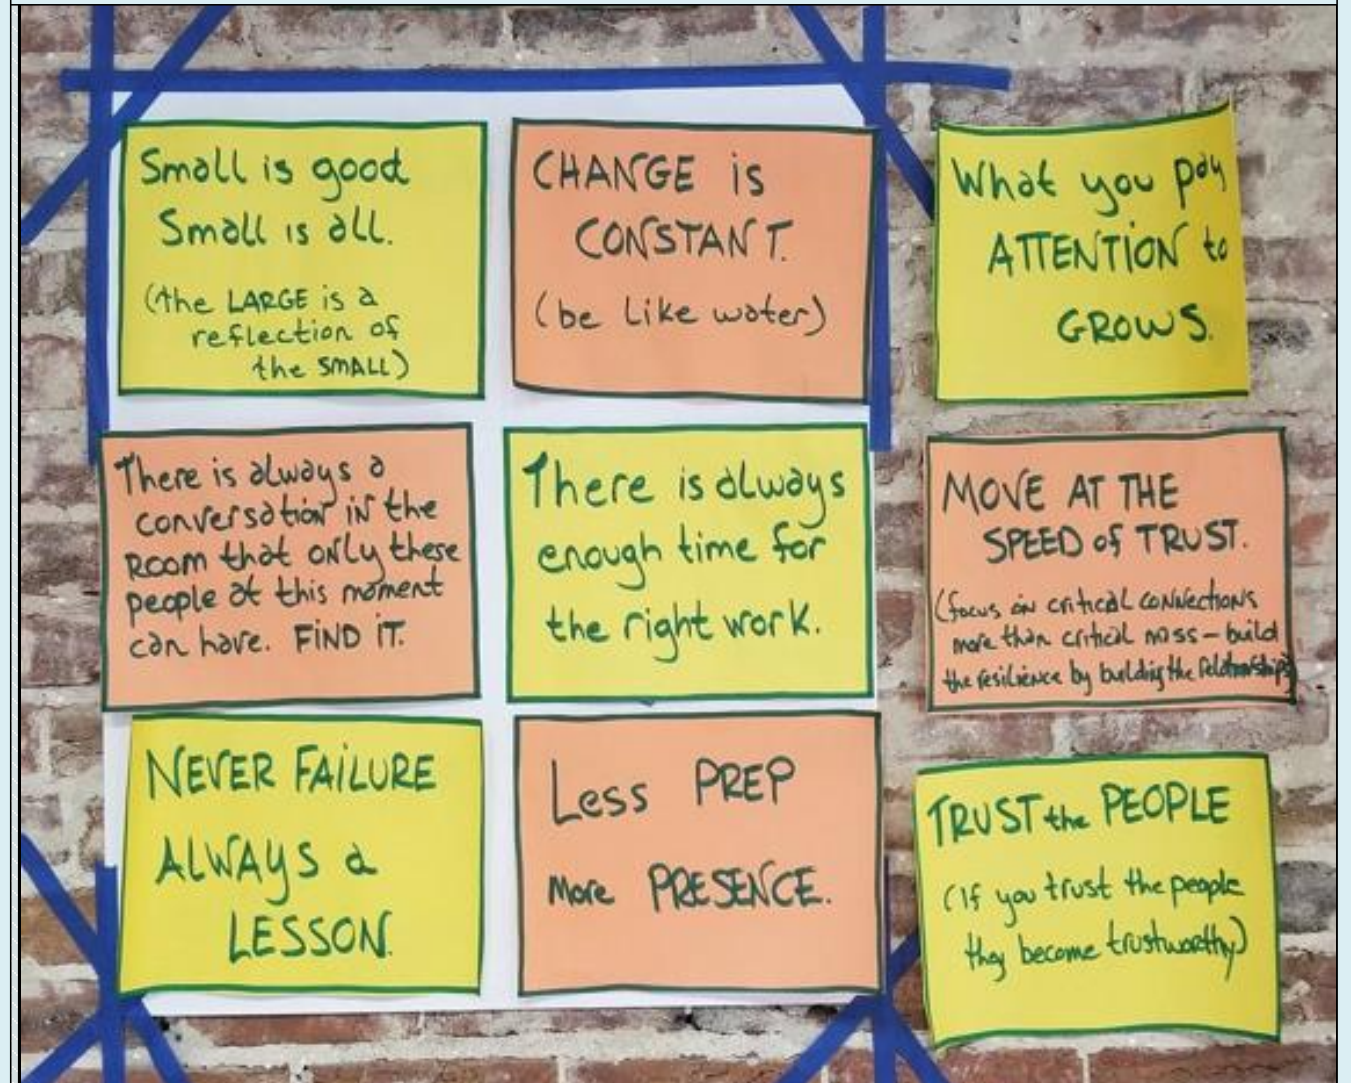 Small is good
Small is all.
(the LARGE is a
reflection of
the SMALL)
CHANGE is
CONSTANT.
(be like water)
What you pay
ATTENTION to
GROWS.
There is always a
conversation in the
room that only these
people at this moment
can have. FIND IT.
There is always
enough time for
the right work.
MOVE AT THE
SPEED of TRUST.
(focus on critical connections
more than critical mass - build
the resilience by building the relationships)
NEVER FAILURE
ALWAYS a
LESSON.
Less PREP
More PRESENCE.
TRUST the PEOPLE
(If you trust the people
they become trustworthy)